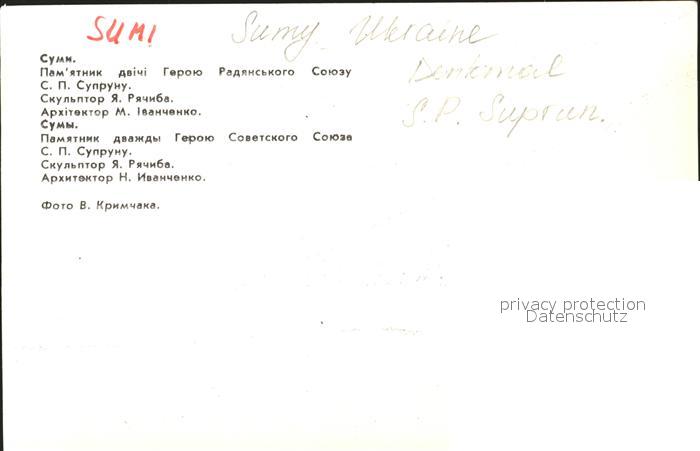 SUMI
Sumy Ukraine
Denkmal
S.P. Suprun.
Суми.
Пам'ятник двічі Герою Радянського Союзу
С. П. Супруну.
Скульптор Я. Рячиба.
Архітектор М. Іванченко.
Сумы.
Памятник дважды Герою Советского Союза
С. П. Супруну.
Скульптор Я. Рячиба.
Архитектор Н. Иванченко.
Фото В. Кримчака.
privacy protection
Datenschutz